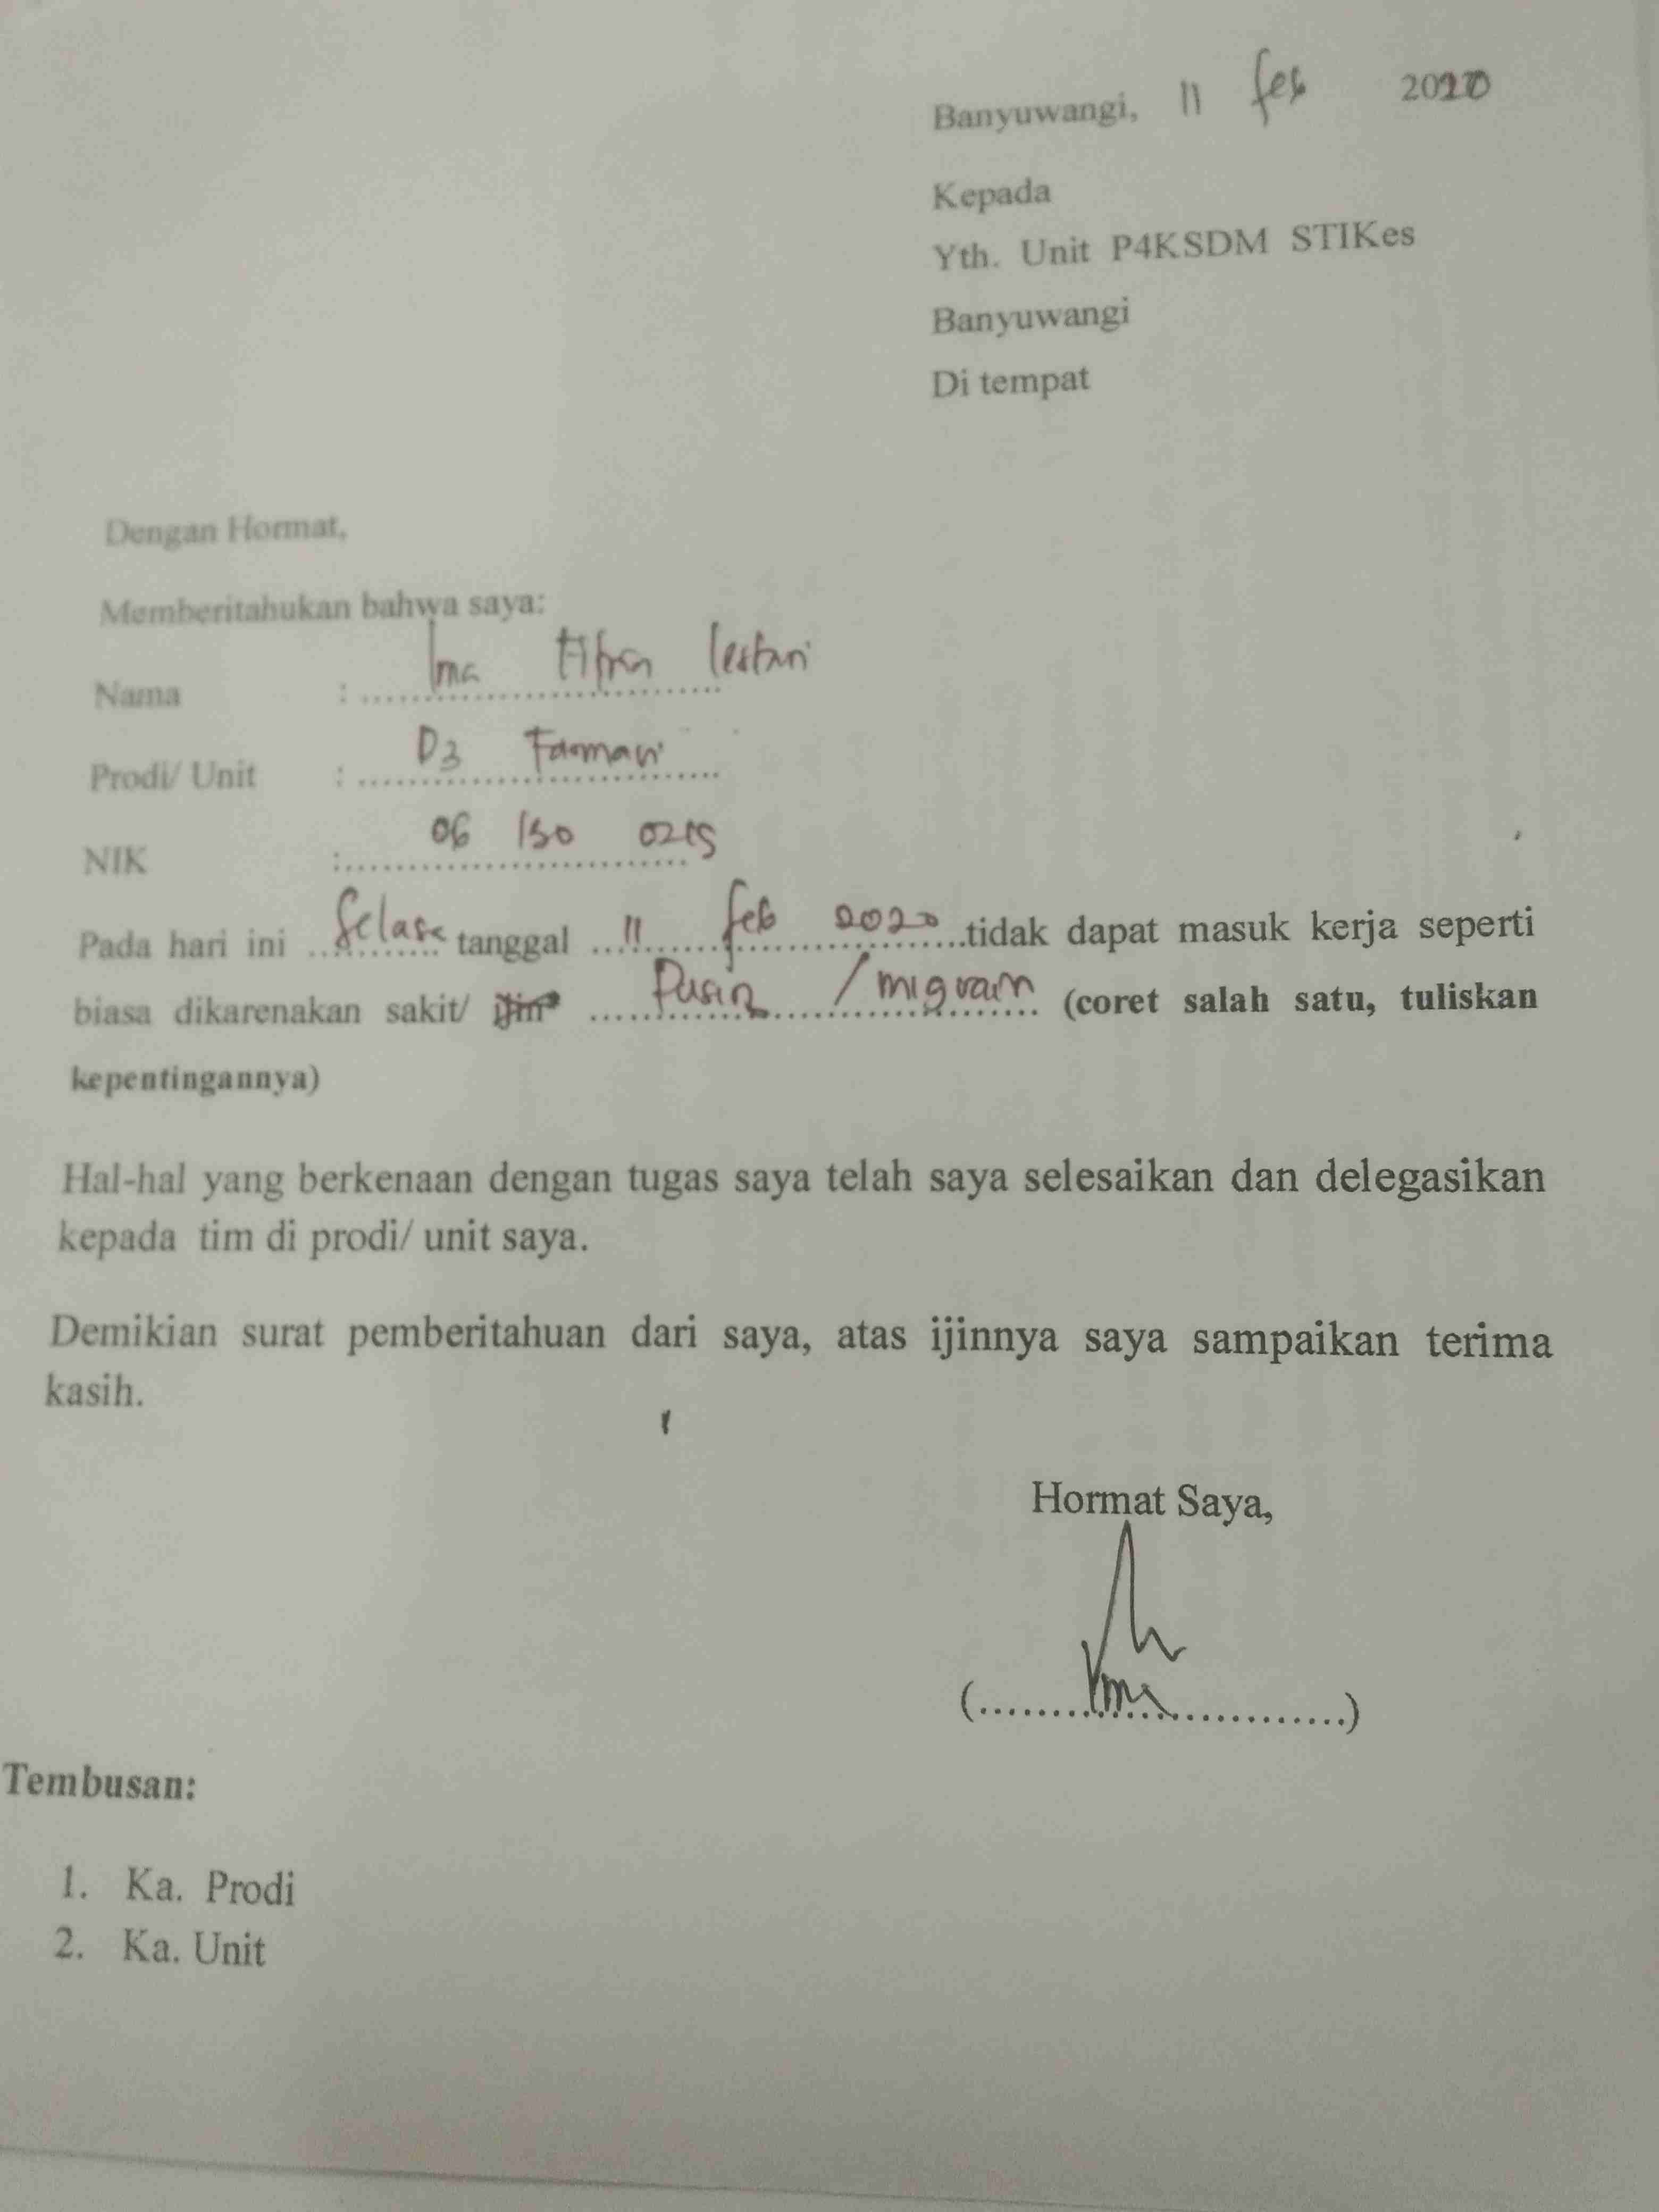 Banyuwangi, 11 feb 2020
Kepada
Yth. Unit P4KSDM STIKes
Banyuwangi
Di tempat
Dengan Hormat,
Memberitahukan bahwa saya:
Nama : Ima Fitri Lestari
Prodi/ Unit : D3 Farmasi
NIK : 06 0215
Pada hari ini Selasa tanggal 11 feb 2020 tidak dapat masuk kerja seperti
biasa dikarenakan sakit/ ijin Pusing / migrain (coret salah satu, tuliskan
kepentingannya)
Hal-hal yang berkenaan dengan tugas saya telah saya selesaikan dan delegasikan
kepada tim di prodi/ unit saya.
Demikian surat pemberitahuan dari saya, atas ijinnya saya sampaikan terima
kasih.
Hormat Saya,
(Ima)
Tembusan:
1. Ka. Prodi
2. Ka. Unit